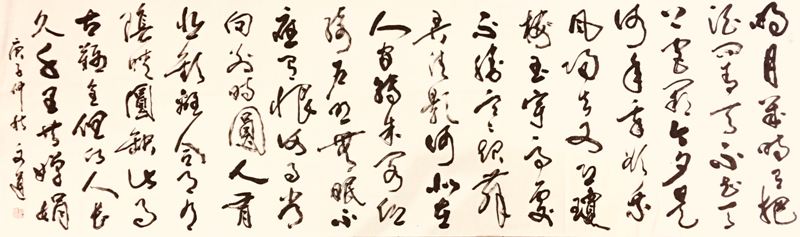 明月幾時有把
酒問青天不知天
上宮闕今夕是
何年我欲乘
風歸去又恐瓊
樓玉宇高處
不勝寒起舞
弄清影何似在
人間轉朱閣低
綺戶照無眠不
應有恨何事長
向別時圓人有
悲歡離合月有
陰晴圓缺此事
古難全但願人長
久千里共嬋娟
庚子仲秋文